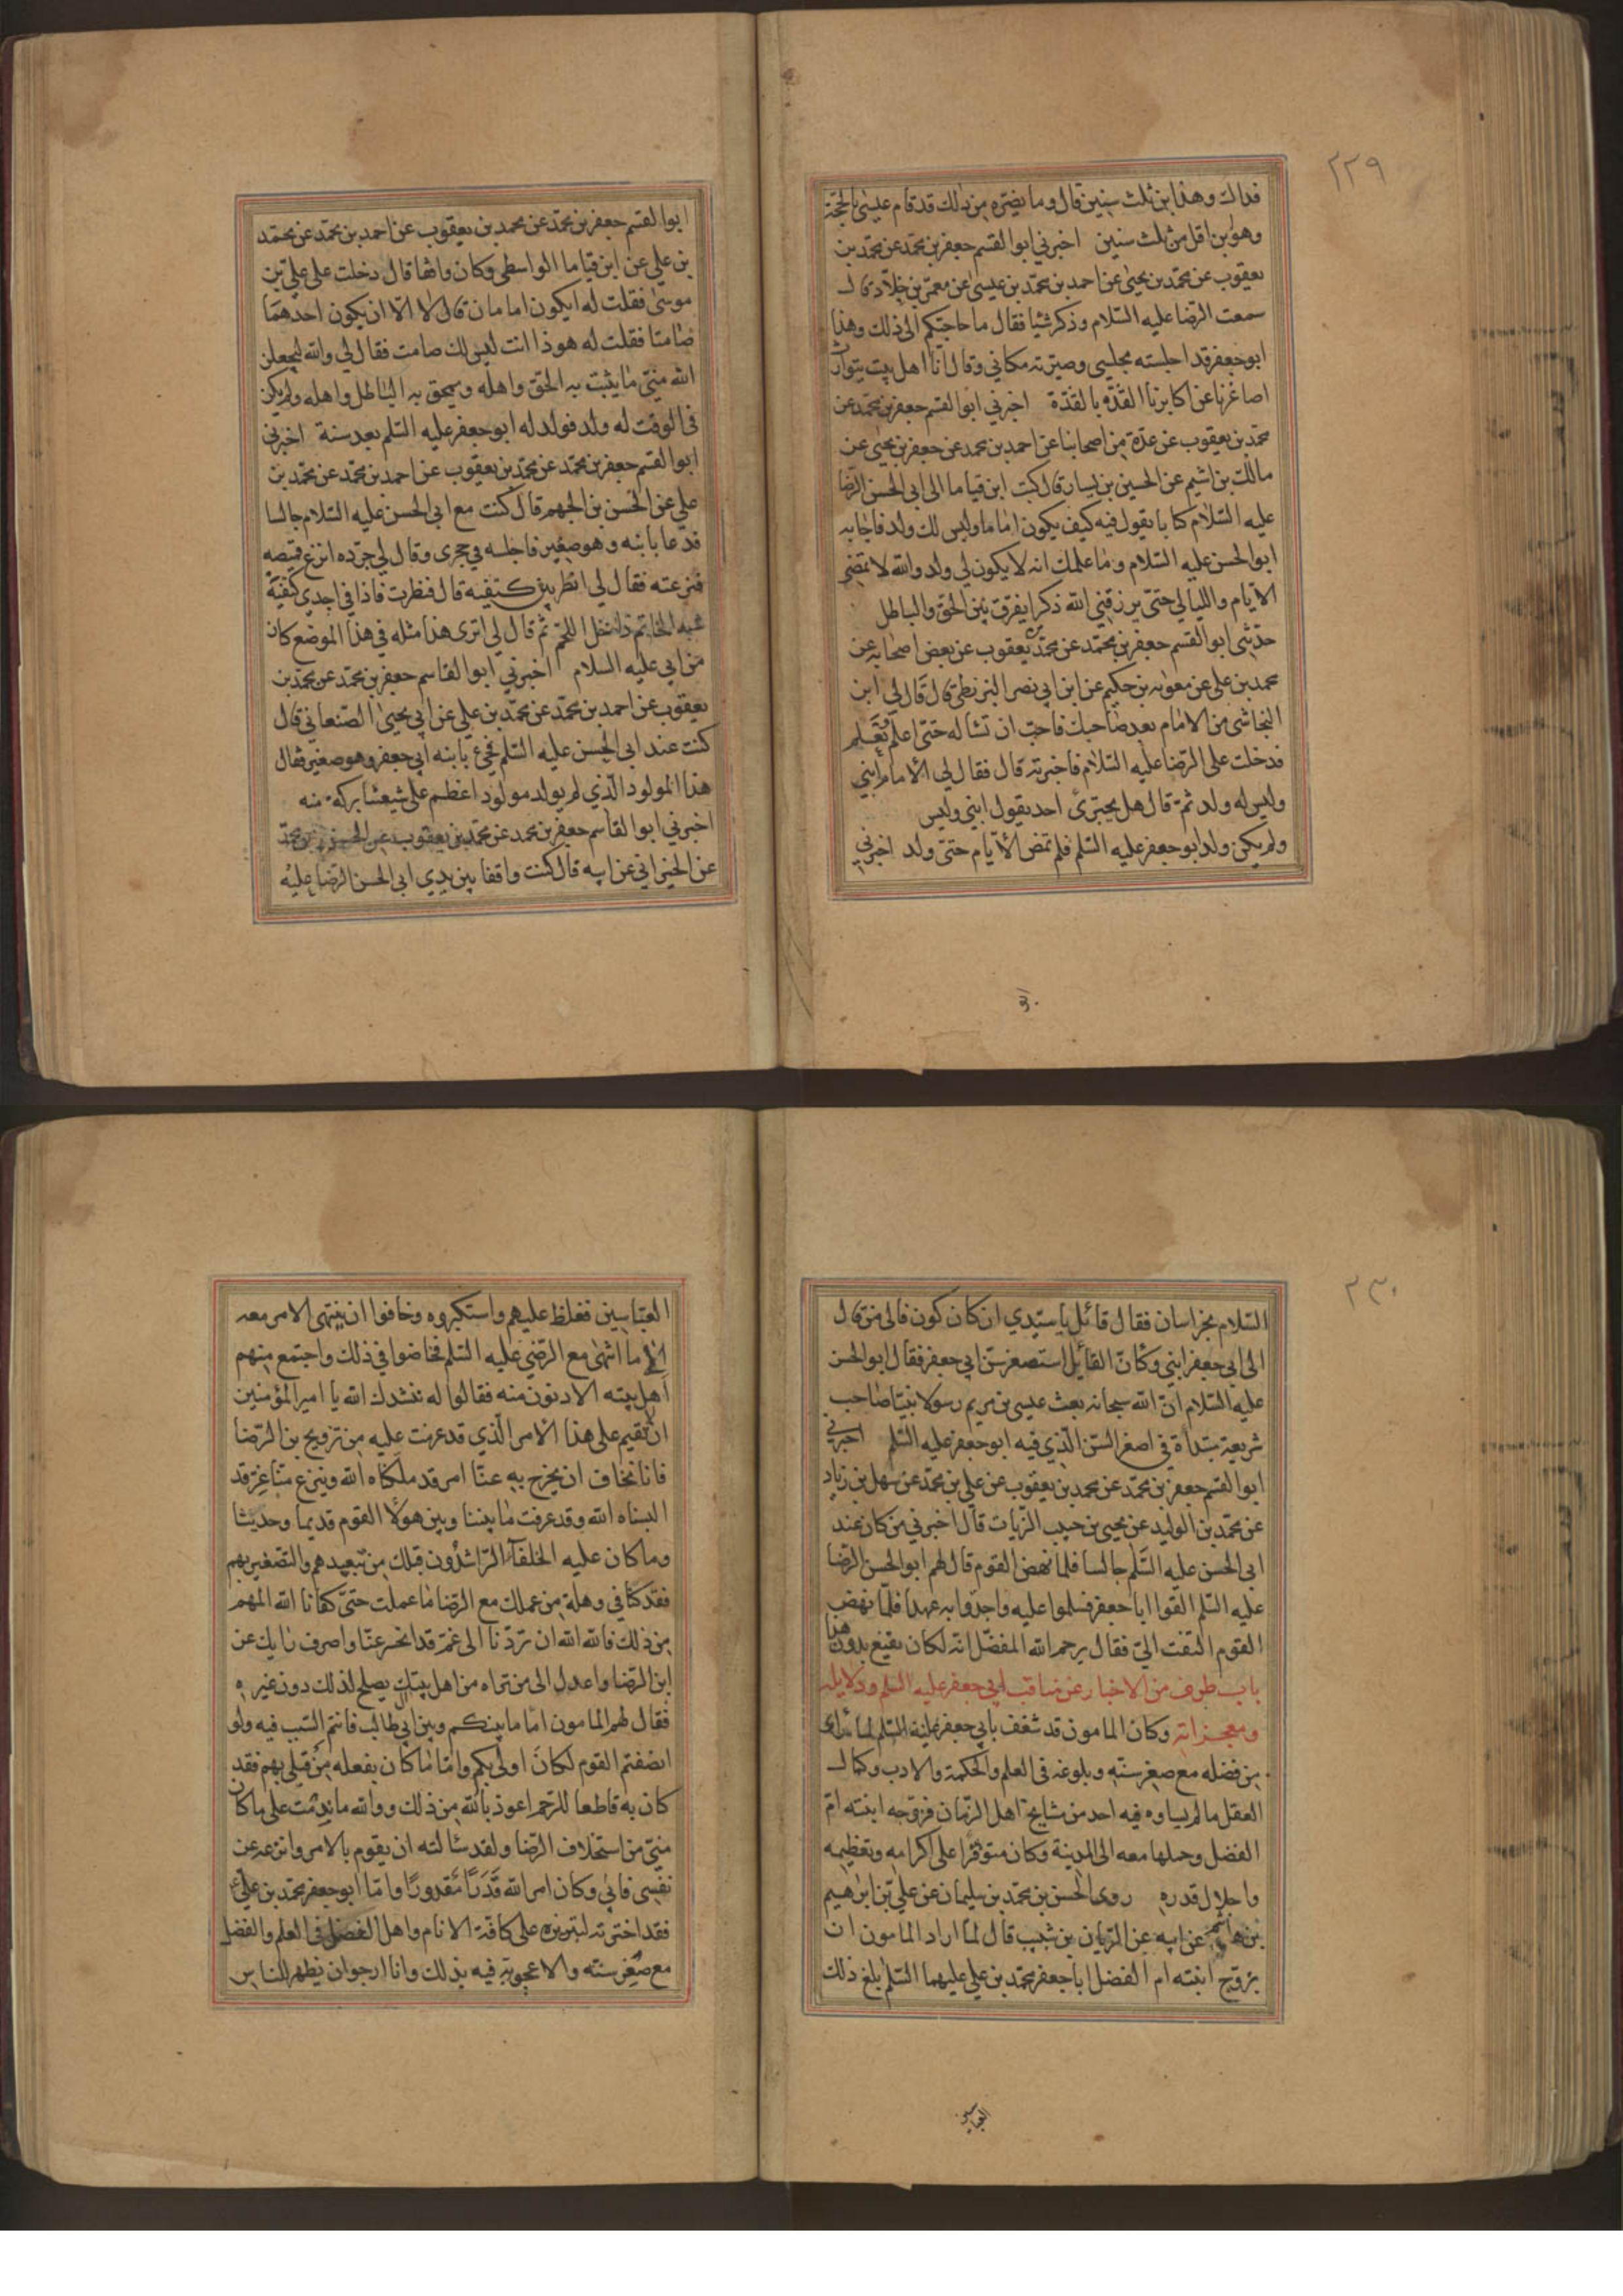 ٢٢٩
فداك وهذا ابن ثلث سنين قال وما يضره من ذلك قد قام عيسى بالحجة
وهو ابن اقل من ثلث سنين اخبرني ابو القسم جعفر بن محمد عن محمد بن
يعقوب عن محمد بن يحيى عن احمد بن محمد بن عيسى عن معمر بن خلاد قال
سمعت الرضا عليه السلام وذكر شيئا فقال ما حاجتكم الى ذلك وهذا
ابو جعفر قد اجلسته مجلسي وصيرته مكاني وقال انا اهل بيت يتوارث
اصاغرنا عن اكابرنا القذة بالقذة اخبرني ابو القسم جعفر بن محمد عن
محمد بن يعقوب عن عدة من اصحابنا عن احمد بن محمد عن جعفر بن يحيى عن
مالك بن اشيم عن الحسين بن يسار قال كتب ابن قياما الى ابي الحسن الرضا
عليه السلام كتابا يقول فيه كيف يكون اماما وليس لك ولد فاجابه
ابو الحسن عليه السلام وما علمك انه لا يكون لي ولد والله لا تمضى
الايام والليالي حتى يرزقني الله ذكرا يفرق بين الحق والباطل
حدثني ابو القسم جعفر بن محمد عن محمد بن يعقوب عن بعض اصحابه عن
محمد بن علي عن معوية بن حكيم عن ابن ابي نصر البزنطي قال قال لي ابن
النجاشي من الامام بعد صاحبك فاحب ان تساله حتى اعلم
فدخلت على الرضا عليه السلام فاخبرته قال فقال لي الامام ابني
وليس له ولد ثم قال هل يجتري احد يقول ابني وليس
ولم يكن ولد ابو جعفر عليه السلم فلم تمض الأيام حتى ولد اخبرني
ابوا لقسم جعفر بن محمد عن محمد بن يعقوب عن احمد بن محمد عن محمد
بن علي عن ابن قياما الواسطي وكان واقفا قال دخلت على علي بن
موسى فقلت له ايكون امامان قال لا الا ان يكون احدهما
صامتا فقلت له هو ذا انت ليس لك صامت فقال لي والله ليجعلن
الله مني ما يثبت به الحق واهله ويمحق به الباطل واهله ولم يكن
في الوقت له ولد فولد له ابو جعفر عليه السلم بعد سنة اخبرني
ابوا لقسم جعفر بن محمد عن محمد بن يعقوب عن احمد بن محمد عن محمد بن
علي عن الحسن بن الجهم قال كنت مع ابي الحسن عليه السلام جالسا
فدعا بابنه وهو صغير فاجلسه في حجري وقال لي جرده انزع قميصه
فنزعته فقال لي انظر بين كتفيه قال فنظرت فاذا في احدي كتفيه
شبه الخاتم داخل اللحم ثم قال لي اترى هذا مثله في هذا الموضع كان
من ابي عليه السلام اخبرني ابوا لقاسم جعفر بن محمد عن محمد بن
يعقوب عن احمد بن محمد عن محمد بن علي عن ابي يحيى الصنعاني قال
كنت عند ابي الحسن عليه السلم فجئ بابنه ابي جعفر وهو صغير فقال
هذا المولود الذي لم يولد مولود اعظم على شيعتنا بركة منه
اخبرني ابوا لقاسم جعفر بن محمد عن محمد بن يعقوب عن الحسين بن محمد
عن الخيراني عن ابيه قال كنت واقفا بين يدي ابي الحسن الرضا عليه
٢٣٠
السلام بخراسان فقال قائل يا سيدي ان كان كون فالى من قال
الى ابي جعفر ابني وكان القائل استصغر سن ابي جعفر فقال ابو الحسن
عليه السلام ان الله سبحانه بعث عيسى بن مريم رسولا نبيا صاحب
شريعة مبتداة في اصغر السن الذي فيه ابو جعفر عليه السلم اخبرني
ابو القسم جعفر بن محمد عن محمد بن يعقوب عن علي بن محمد عن سهل بن زياد
عن محمد بن الوليد عن يحيى بن حبيب الزيات قال اخبرني من كان عند
ابي الحسن عليه السلم جالسا فلما نهض القوم قال لهم ابو الحسن الرضا
عليه السلم القوا ابا جعفر فسلموا عليه واجدوا به عهدا فلما نهض
القوم التفت الي فقال يرحم الله المفضل انه لكان يقنع بدون هذا
باب طرف من الاخبار عن مناقب ابي جعفر عليه السلم ودلايله
ومعجزاته وكان المامون قد شغف بابي جعفر عليه السلم لما رأى
من فضله مع صغر سنه وبلوغه في العلم والحكمة والادب وكمال
العقل ما لم يساوه فيه احد من مشايخ اهل الزمان فزوجه ابنته ام
الفضل وحملها معه الى المدينة وكان متوفرا على اكرامه وتعظيمه
واجلال قدره روى الحسن بن محمد بن سليمان عن علي بن ابراهيم
بن هاشم عن ابيه عن الريان بن شبيب قال لما اراد المامون ان
يزوج ابنته ام الفضل ابا جعفر محمد بن علي عليهما السلم بلغ ذلك
العباسين
العباسين فغلظ عليهم واستكبروه وخافوا ان ينتهى الامر معه
الى ما انتهى مع الرضي عليه السلم فخاضوا في ذلك واجتمع منهم
اهل بيته الادنون منه فقالوا له ننشدك الله يا امير المؤمنين
ان تقيم على هذا الامر الذي قد عزمت عليه من تزويج بن الرضا
فانا نخاف ان يخرج به عنا امر قد ملكناه الله وينزع منا عز قد
البسناه الله وقد عرفت ما بيننا وبين هولا القوم قديما وحديثا
وما كان عليه الخلفآء الراشدون قبلك من تبعيدهم والتصغير بهم
فقد كنا في وهلة من عملك مع الرضا ما عملت حتى كفانا الله المهم
من ذلك فالله الله ان تردنا الى غم قد انحسر عنا واصرف رايك عن
ابن الرضا واعدل الى من تراه من اهل بيتك يصلح لذلك دون غيره
فقال لهم المامون اما ما بينكم وبين ال ابي طالب فانتم السبب فيه ولو
انصفتم القوم لكان اولى بكم واما ما كان يفعله من قبلي بهم فقد
كان به قاطعا للرحم اعوذ بالله من ذلك ووالله ما ندمت على ما كان
مني من استخلاف الرضا ولقد سئالته ان يقوم بالامر وانزعه عن
نفسي فابي وكان امر الله قدرا مقدورا واما ابو جعفر محمد بن علي
فقد اخترته لتبريزه على كافة الانام واهل الفضل في العلم والفضل
مع صغر سنه والاعجوبة فيه بذلك وانا ارجوان يظهر للناس